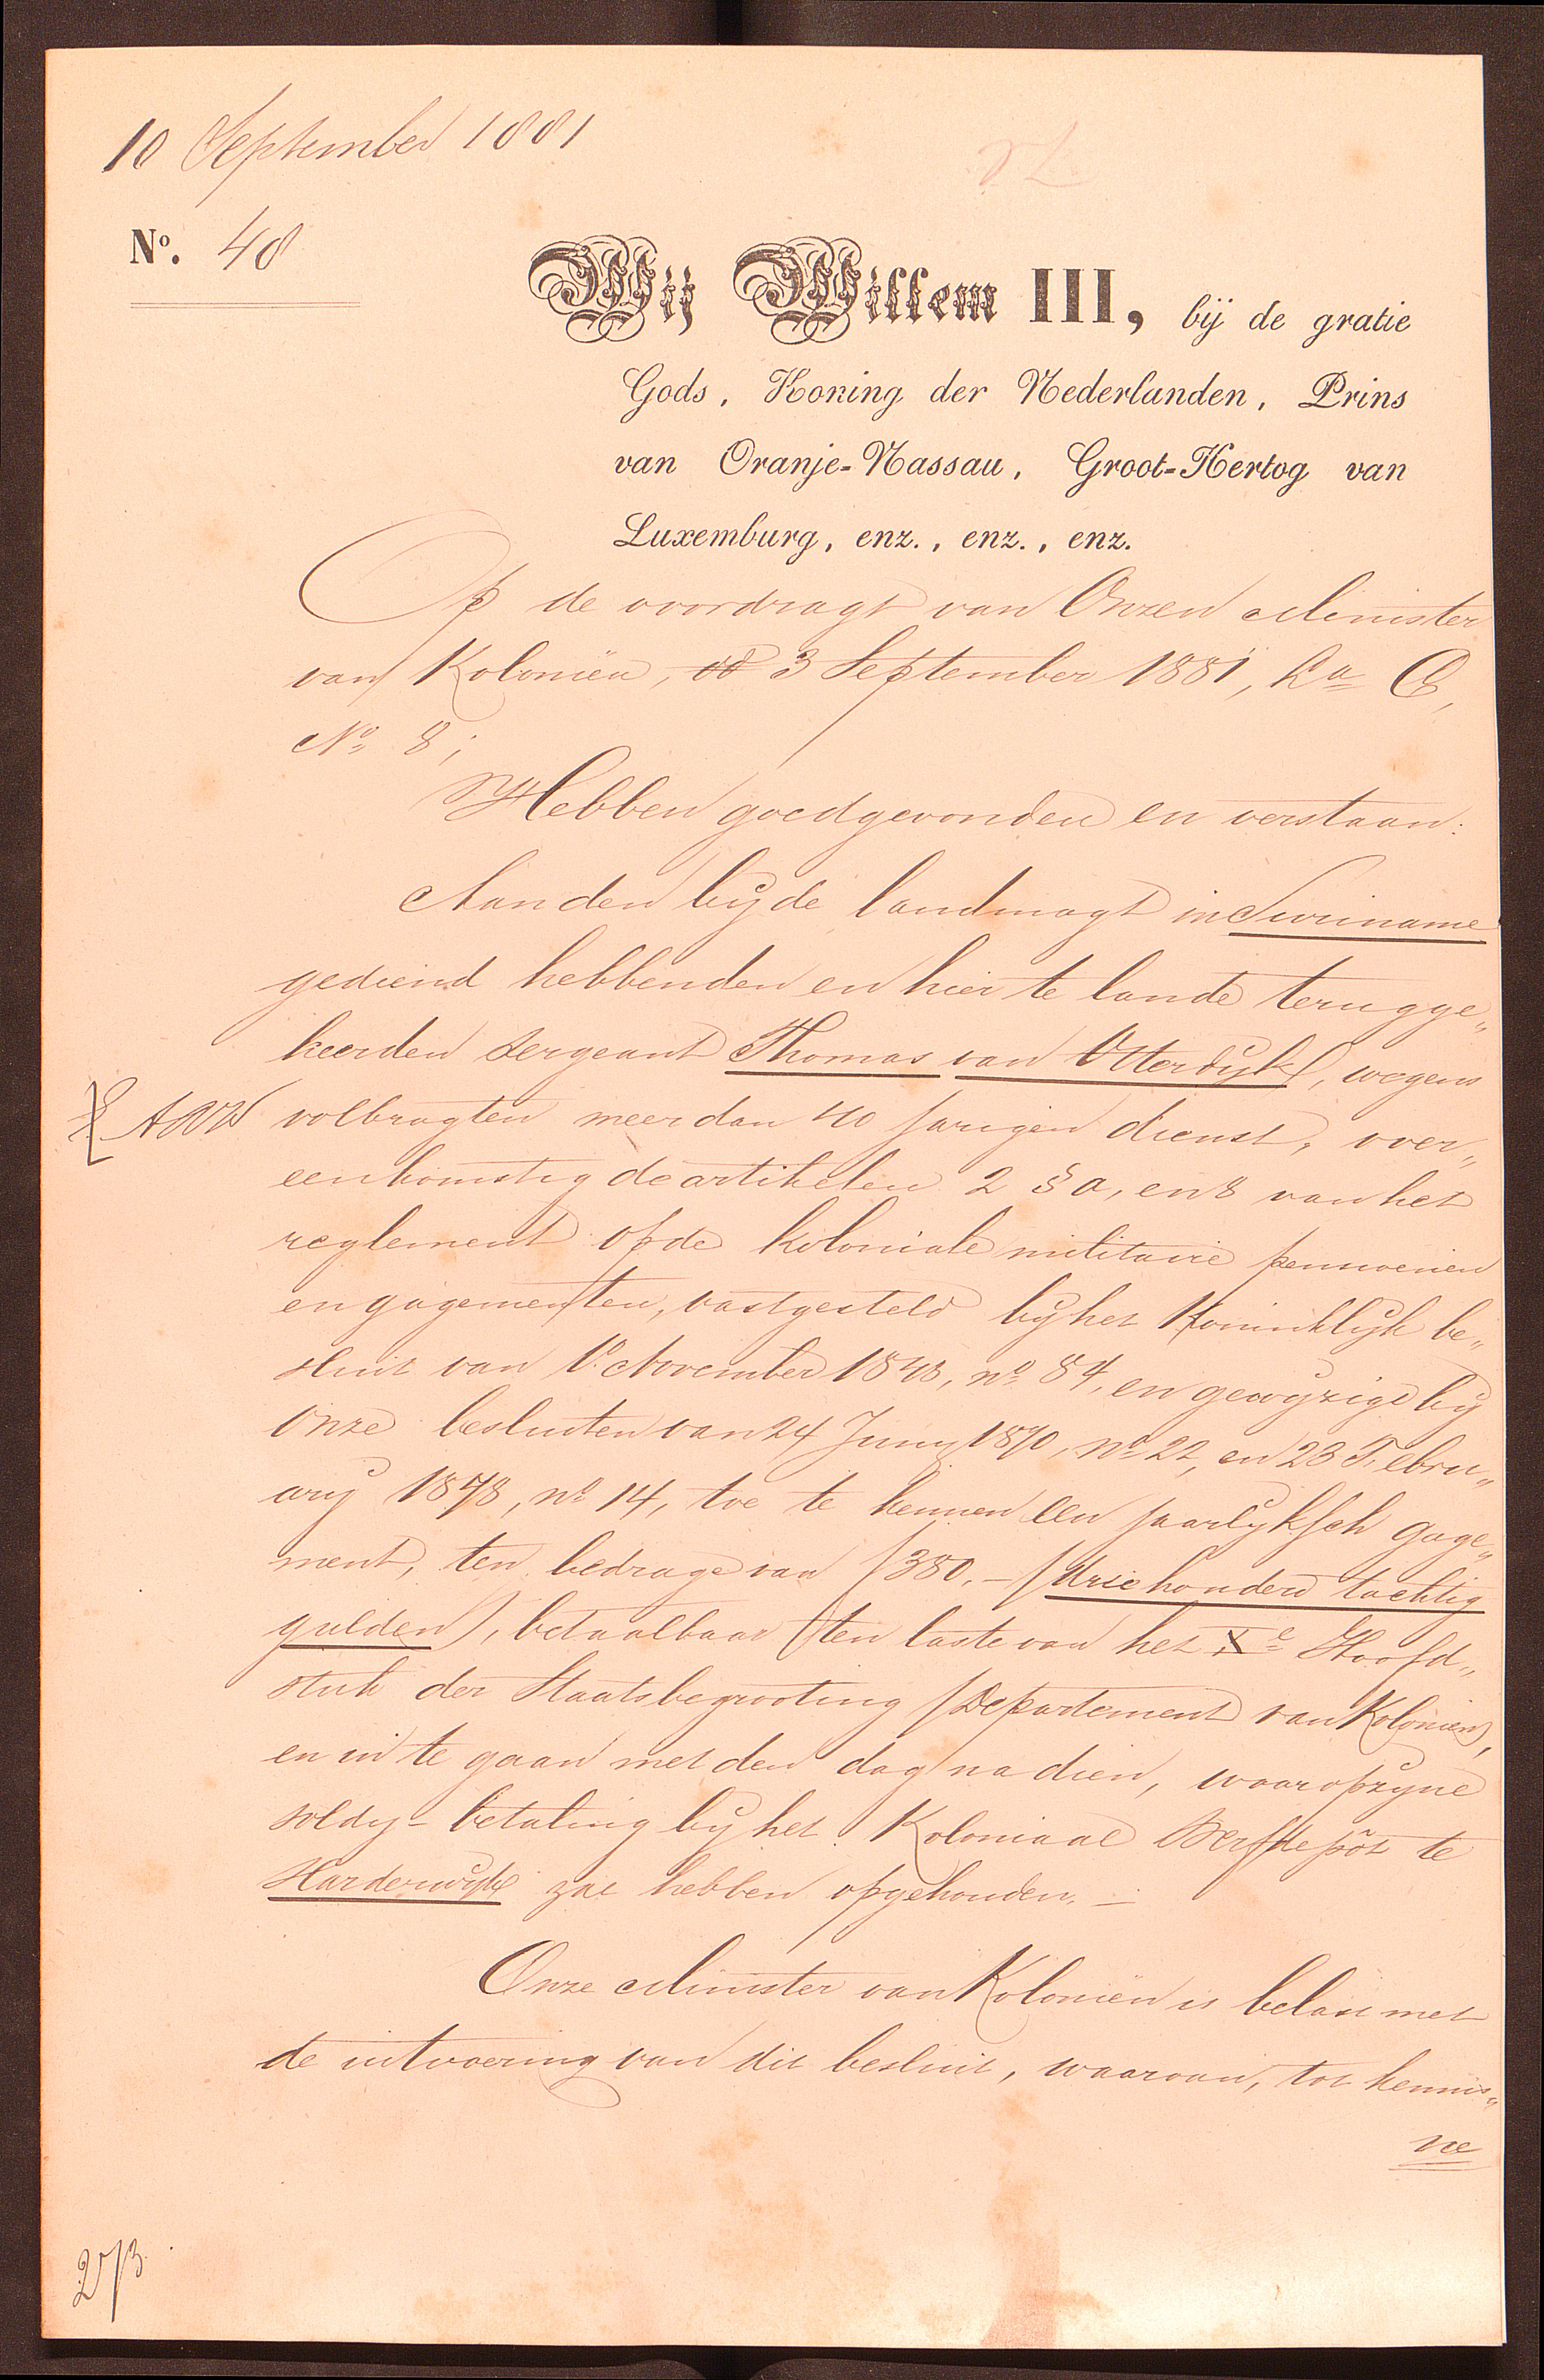 10 September 1881
No. 48
Wij Willem III, bij de gratie
Gods, Koning der Nederlanden, Prins
van Oranje-Nassau, Groot-Hertog van
Luxemburg, enz., enz., enz.
Op de voordragt van Onzen Minister
van Koloniën, dd 3 September 1881, La C,
No 8;
Hebben goedgevonden en verstaan:
Aan den bij de landmagt in Suriname
gediend hebbenden en hier te lande terugge„
keerden sergeant Thomas van Otterdijk, wegens
volbragten meer dan 40 jarigen dienst, over„
eenkomstig de artikelen 2 § a, en 8 van het
reglement op de koloniale militaire pensioenen
en gagementen, vastgesteld bij het Koninklijk be„
sluit van 1 November 1848, no 84, en gewijzigd bij
Onze besluiten van 24 Junij 1870, no 22, en 23 Febru„
arij 1878, no 14, toe te kennen een jaarlijksch gage„
ment, ten bedrage van f 380.- (drie honderd tachtig
gulden), betaalbaar ten laste van het Xe Hoofd„
stuk der Staatsbegrooting (Departement van Koloniën),
en in te gaan met den dag na dien, waarop zijne
soldij-betaling bij het Koloniaal Werfdepôt te
Harderwijk zal hebben opgehouden. -
Onze Minister van Koloniën is belast met
de uitvoering van dit besluit, waarvan, tot kennis„
ne